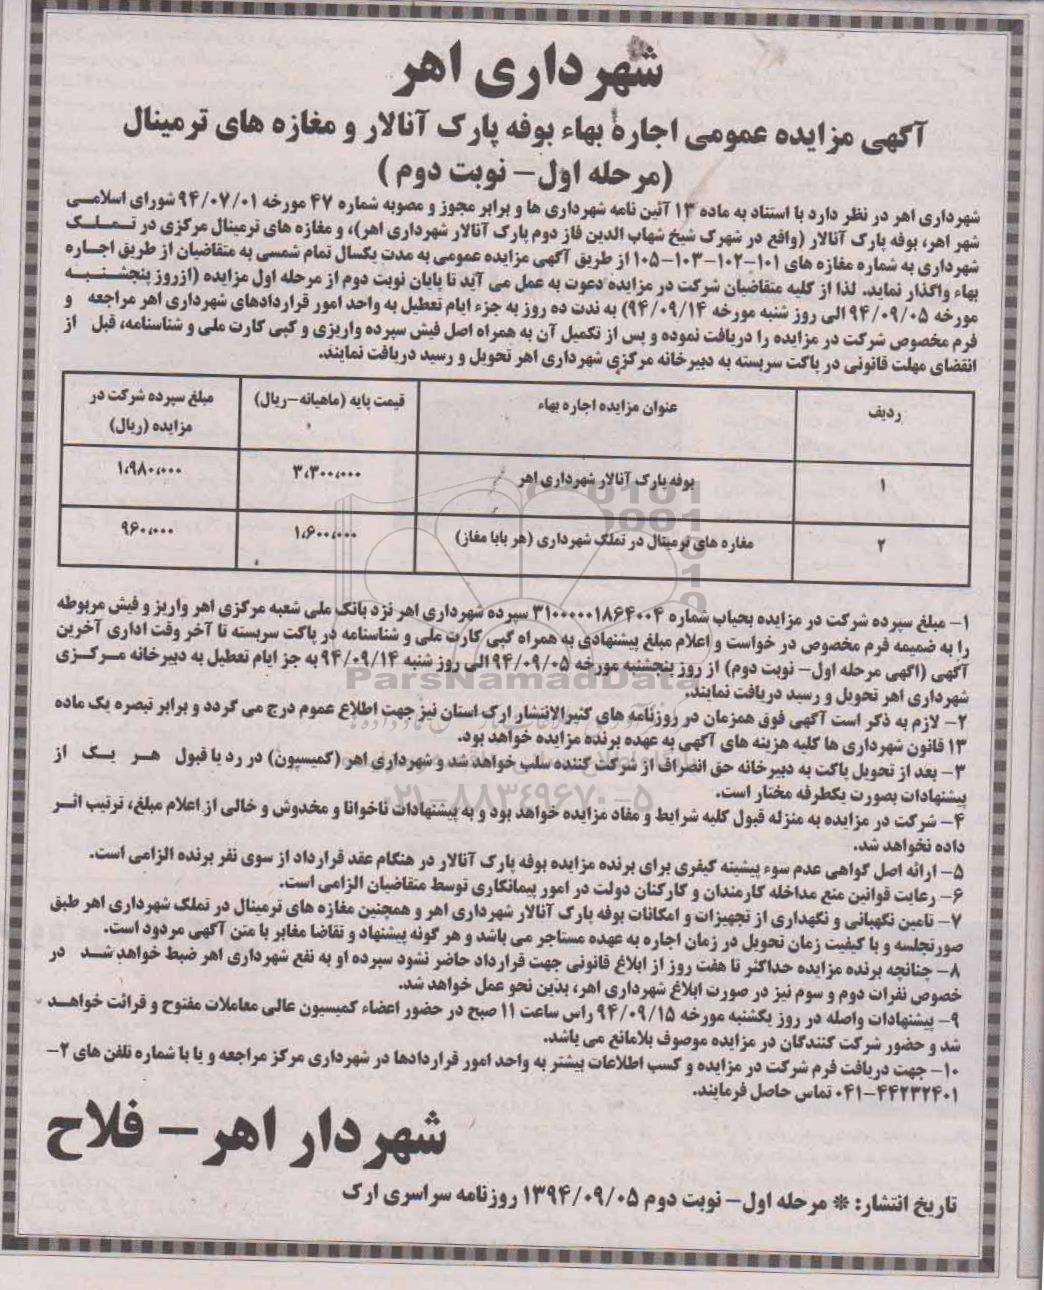 شهرداری اهر
آگهی مزایده عمومی اجاره بهاء بوفه پارک آنالار و مغازه های ترمینال
(مرحله اول- نوبت دوم)
شهرداری اهر در نظر دارد با استناد به ماده ۱۳ آئین نامه شهرداری ها و برابر مجوز و مصوبه شماره ۴۷ مورخه ۹۴/۰۷/۰۱ شورای اسلامی
شهر اهر، بوفه پارک آنالار (واقع در شهرک شیخ شهاب الدین فاز دوم پارک آنالار شهرداری اهر)، و مغازه های ترمینال مرکزی در تملک
شهرداری به شماره مغازه های ۱۰۱-۱۰۲-۱۰۳-۱۰۵ از طریق آگهی مزایده عمومی به مدت یکسال تمام شمسی به متقاضیان از طریق اجاره
بهاء واگذار نماید. لذا از کلیه متقاضیان شرکت در مزایده دعوت به عمل می آید تا پایان نوبت دوم از مرحله اول مزایده (ازروز پنجشنبه
مورخه ۹۴/۰۹/۰۵ الی روز شنبه مورخه ۹۴/۰۹/۱۴) به ندت ده روز به جزء ایام تعطیل به واحد امور قراردادهای شهرداری اهر مراجعه و
فرم مخصوص شرکت در مزایده را دریافت نموده و پس از تکمیل آن به همراه اصل فیش سپرده واریزی و کپی کارت ملی و شناسنامه، قبل از
انقضای مهلت قانونی در پاکت سربسته به دبیرخانه مرکزی شهرداری اهر تحویل و رسید دریافت نمایند.
ردیف عنوان مزایده اجاره بهاء قیمت پایه (ماهیانه-ریال) مبلغ سپرده شرکت در
مزایده (ریال)
۱ بوفه پارک آنالار شهرداری اهر ۳،۳۰۰،۰۰۰ ۱،۹۸۰،۰۰۰
۲ مغازه های ترمینال در تملک شهرداری (هر بابا مغاز) ۱،۶۰۰،۰۰۰ ۹۶۰،۰۰۰
۱- مبلغ سپرده شرکت در مزایده بحیاب شماره ۳۱۰۰۰۰۰۱۸۶۴۰۰۴ سپرده شهرداری اهر نزد بانک ملی شعبه مرکزی اهر واریز و فیش مربوطه
را به ضمیمه فرم مخصوص در خواست و اعلام مبلغ پیشنهادی به همراه کپی کارت ملی و شناسنامه در پاکت سربسته تا آخر وقت اداری آخرین
آگهی (اگهی مرحله اول- نوبت دوم) از روز پنجشنبه مورخه ۹۴/۰۹/۰۵ الی روز شنبه ۹۴/۰۹/۱۴ به جز ایام تعطیل به دبیرخانه مرکزی
ParsNamadData
شهرداری اهر تحویل و رسید دریافت نمایند.
۲- لازم به ذکر است آگهی فوق همزمان در روزنامه های کثیرالانتشار ارک استان نیز جهت اطلاع عموم درج می گردد و برابر تبصره یک ماده
۱۳ قانون شهرداری ها کلیه هزینه های آگهی به عهده برنده مزایده خواهد بود.
۳- بعد از تحویل پاکت به دبیرخانه حق انصراف از شرکت کننده سلب خواهد شد و شهرداری اهر (کمیسیون) در رد یا قبول هر یک از
پیشنهادات بصورت یکطرفه مختار است.
۰۲۱-۸۸۳۴۹۶۷۰-۵
۴- شرکت در مزایده به منزله قبول کلیه شرایط و مفاد مزایده خواهد بود و به پیشنهادات ناخوانا و مخدوش و خالی از اعلام مبلغ، ترتیب اثر
داده نخواهد شد.
۵- ارائه اصل گواهی عدم سوء پیشینه کیفری برای برنده مزایده بوفه پارک آنالار در هنگام عقد قرارداد از سوی نفر برنده الزامی است.
۶- رعایت قوانین منع مداخله کارمندان و کارکنان دولت در امور پیمانکاری توسط متقاضیان الزامی است.
۷- تامین نگهبانی و نگهداری از تجهیزات و امکانات بوفه پارک آنالار شهرداری اهر و همچنین مغازه های ترمینال در تملک شهرداری اهر طبق
صورتجلسه و با کیفیت زمان تحویل در زمان اجاره به عهده مستاجر می باشد و هر گونه پیشنهاد و تقاضا مغایر با متن آگهی مردود است.
۸- چنانچه برنده مزایده حداکثر تا هفت روز از ابلاغ قانونی جهت قرارداد حاضر نشود سپرده او به نفع شهرداری اهر ضبط خواهد شد در
خصوص نفرات دوم و سوم نیز در صورت ابلاغ شهرداری اهر، بدین نحو عمل خواهد شد.
۹- پیشنهادات واصله در روز یکشنبه مورخه ۹۴/۰۹/۱۵ راس ساعت ۱۱ صبح در حضور اعضاء کمیسیون عالی معاملات مفتوح و قرائت خواهد
شد و حضور شرکت کنندگان در مزایده موصوف بلامانع می باشد.
۱۰- جهت دریافت فرم شرکت در مزایده و کسب اطلاعات بیشتر به واحد امور قراردادها در شهرداری مرکز مراجعه و یا با شماره تلفن های ۲-
۰۴۱-۴۴۲۳۲۴۰۱ تماس حاصل فرمایند.
شهردار اهر - فلاح
تاریخ انتشار: * مرحله اول- نوبت دوم ۱۳۹۴/۰۹/۰۵ روزنامه سراسری ارک